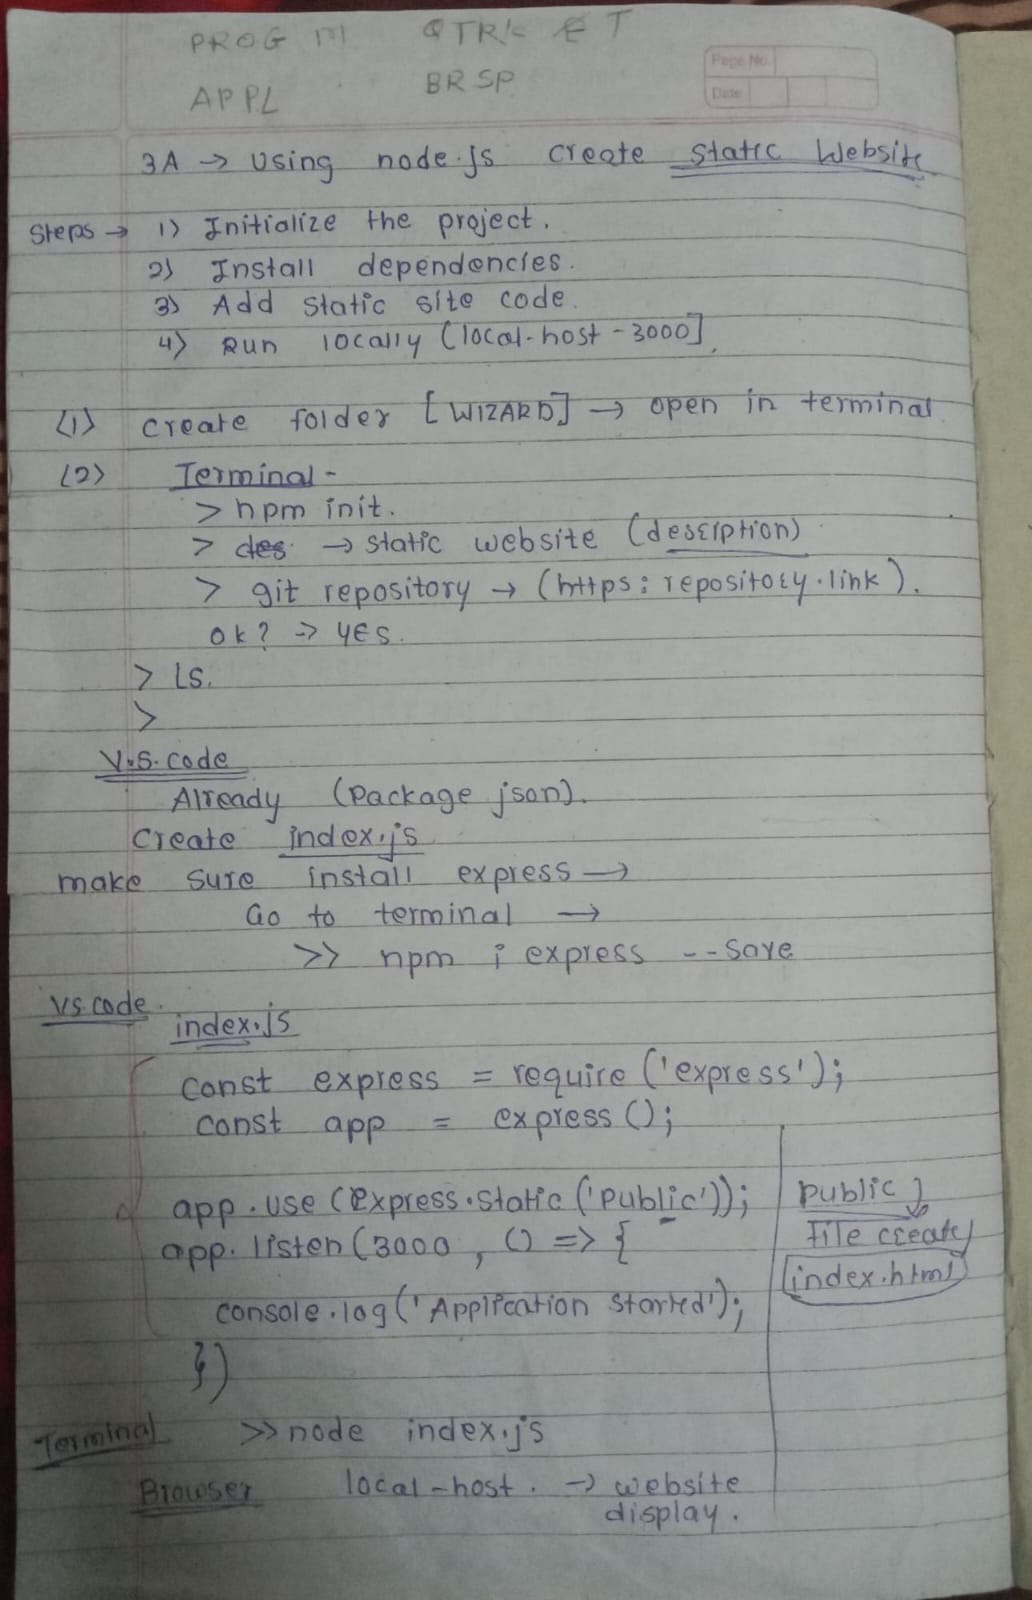 PROG M QTR
APPL BRSP
Page No.
Date
3A → Using node.js create Static Website
Steps → 1) Initialize the project.
2) Install dependencies.
3) Add static site code.
4) Run locally [local-host - 3000]
(1) create folder [WIZARD] → open in terminal
(2) Terminal -
> npm init.
> des → static website (desciption)
> git repository → (https: repository.link).
ok? → yes.
> LS.
>
V.S. code
Already (package json).
create index.js
make sure install express →
Go to terminal →
>> npm i express --save
VS code.
index.js
const express = require ('express');
const app = express ();
app.use (express.static ('public'));
app.listen (3000 , () => {
console.log ('Application Started');
})
public
file create
index.html
Terminal >> node index.js
Browser local-host. → website
display.